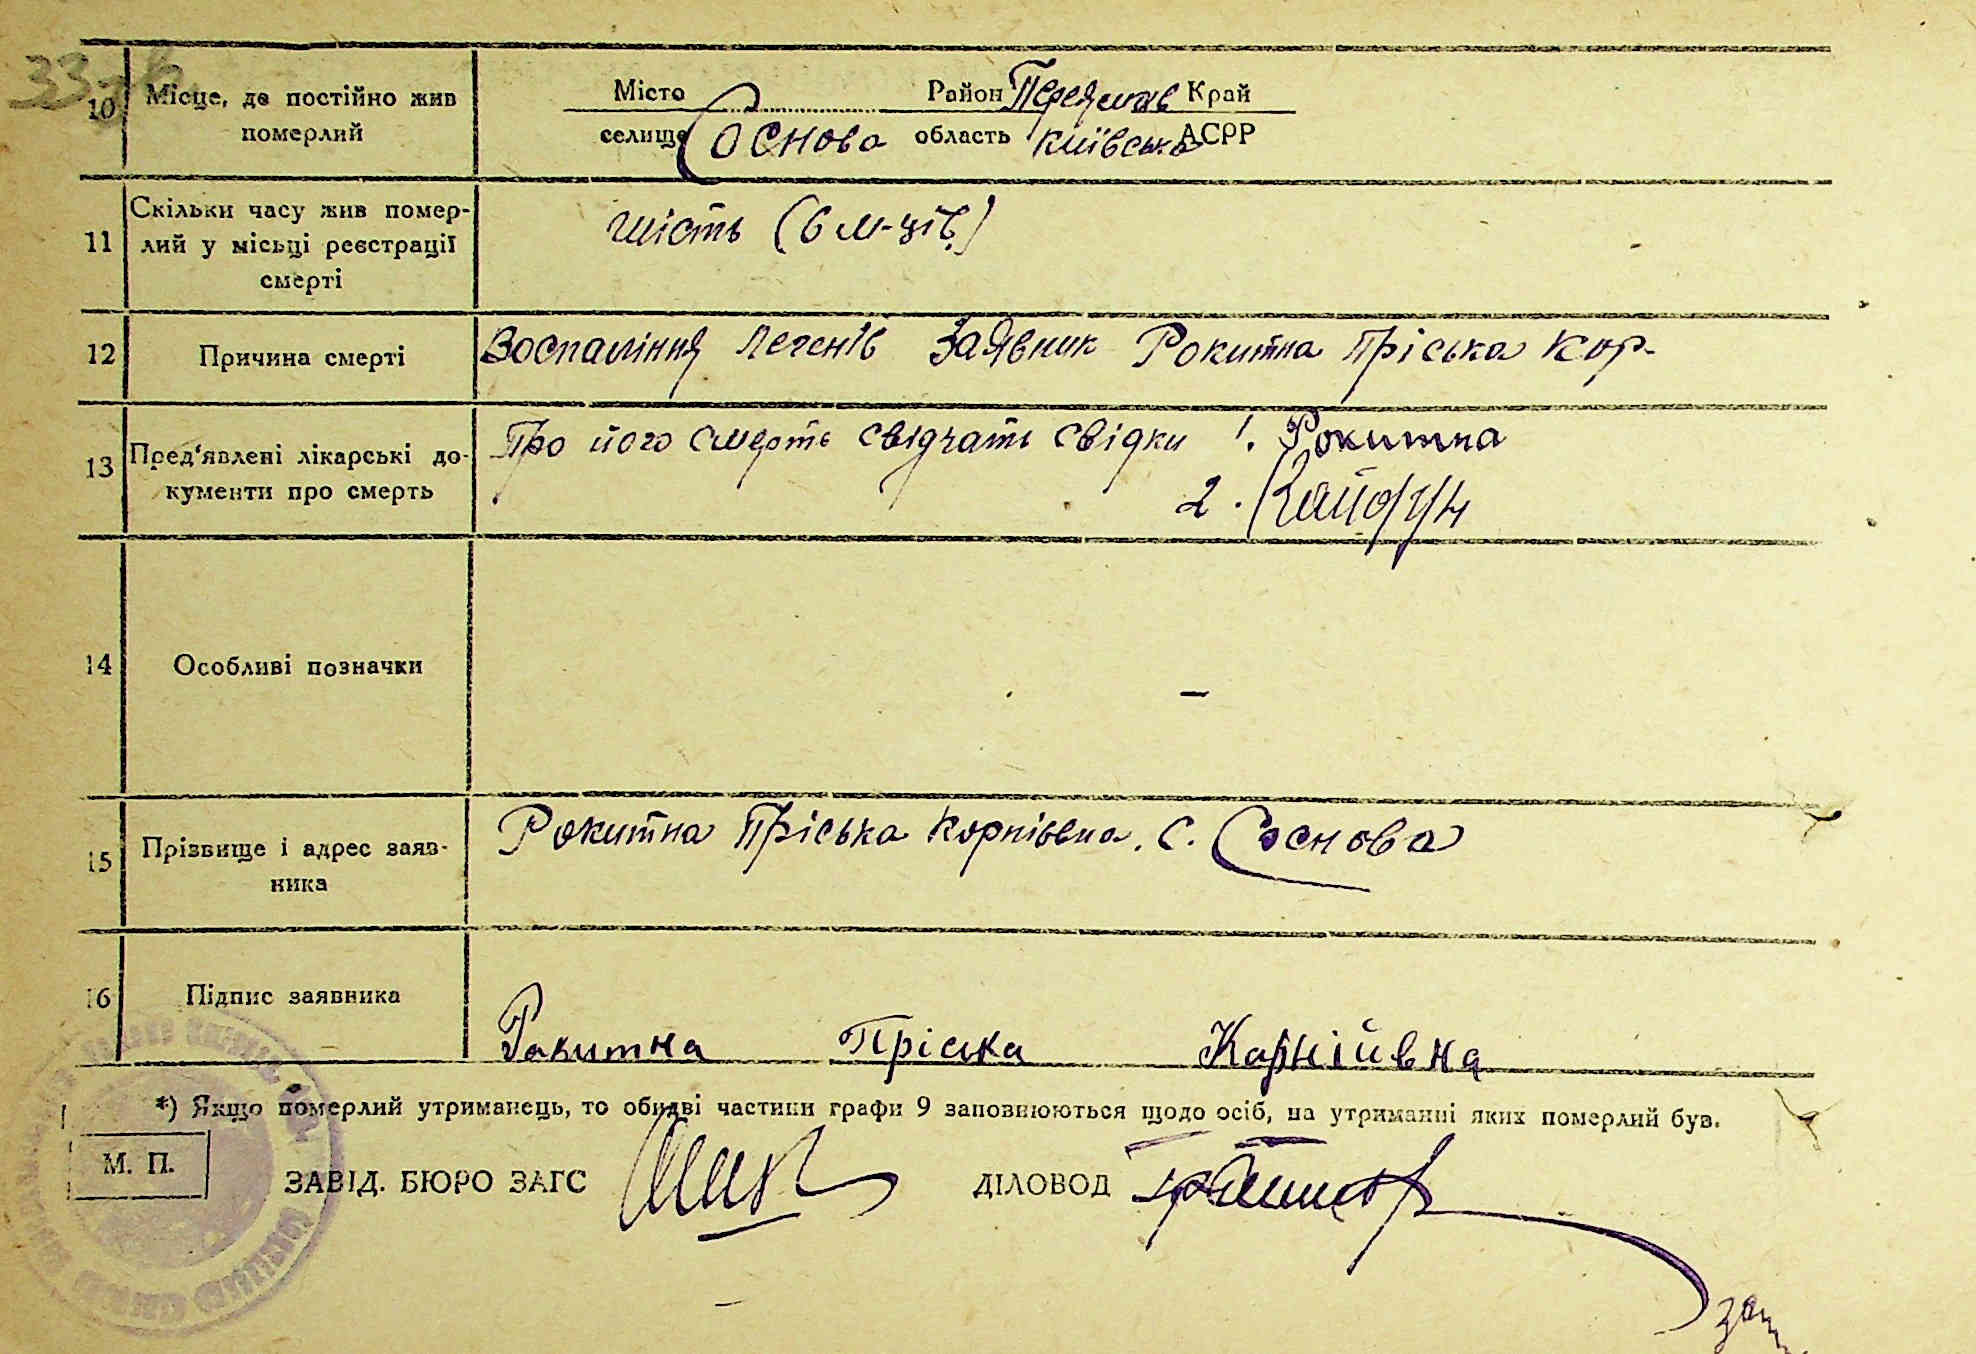 10 Місце, де постійно жив померлий
Місто Район Переяслав Край
селище Соснова область Київська АСРР
11 Скільки часу жив помер-
лий у місьці реєстрації
смерті
шість (6 м-ців)
12 Причина смерті
Воспаління легенів Заявник Рокитна Пріська Кор-
13 Пред'явлені лікарські до-
кументи про смерть
Про його смерть свідчать свідки 1. Рокитна
2. Кайдун
14 Особливі позначки
–
15 Прізвище і адрес заяв-
ника
Рокитна Пріська Корніовна. С. Соснова
16 Підпис заявника
Ракитна Пріська Карнійвна
*) Якщо померлий утриманець, то обидві частини графи 9 заповнюються щодо осіб, на утриманні яких померлий був.
М. П.
ЗАВІД. БЮРО ЗАГС ДІЛОВОД